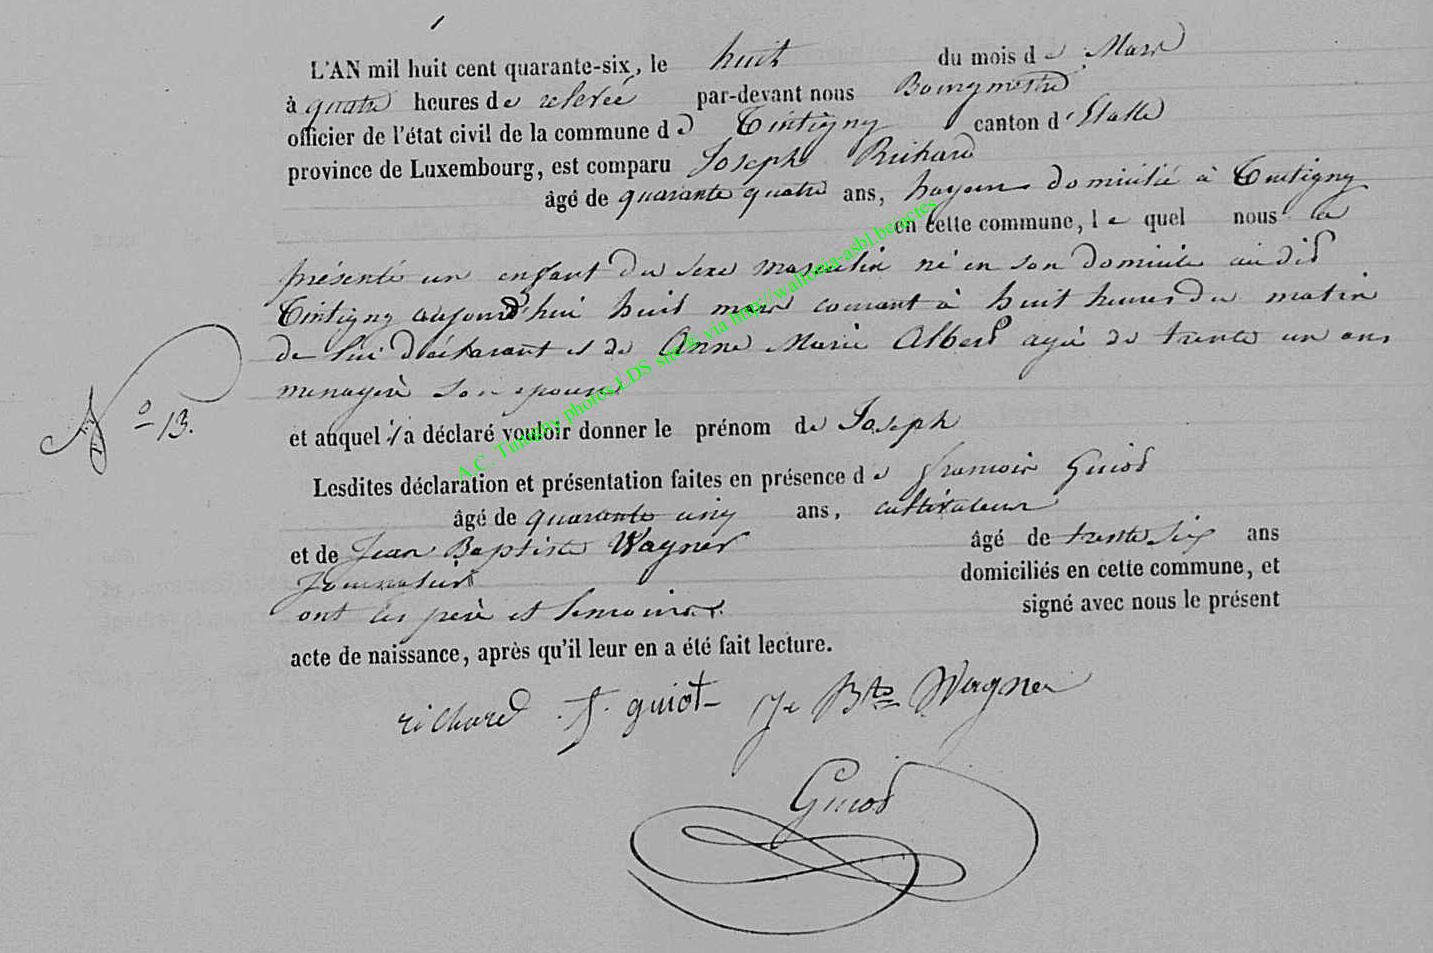 L'AN mil huit cent quarante-six, le huit du mois de Mars
à quatre heures de relevée par-devant nous Bourgmestre
officier de l'état civil de la commune de Tintigny canton d'Etalle
province de Luxembourg, est comparu Joseph Richard
âgé de quarante quatre ans, domicilié à Tintigny
en cette commune, lequel nous a
présenté un enfant du sexe masculin né en son domicile au dit
Tintigny aujourd'hui huit mars courant à huit heures du matin
de lui déclarant et de Anne Marie Albert agée de trente un ans
menagère son epouse
et auquel il a déclaré vouloir donner le prénom de Joseph
Nº 13.
Lesdites déclaration et présentation faites en présence de francois Guiot
âgé de quarante cinq ans, cultivateur
et de Jean Baptiste Wagner âgé de trente six ans
Journalier domiciliés en cette commune, et
ont les père et temoins signé avec nous le présent
acte de naissance, après qu'il leur en a été fait lecture.
richard f. guiot J Bte Wagner
Guiot
A.C. Tintigny photos LDS via http://walloria-asbl.be/actes